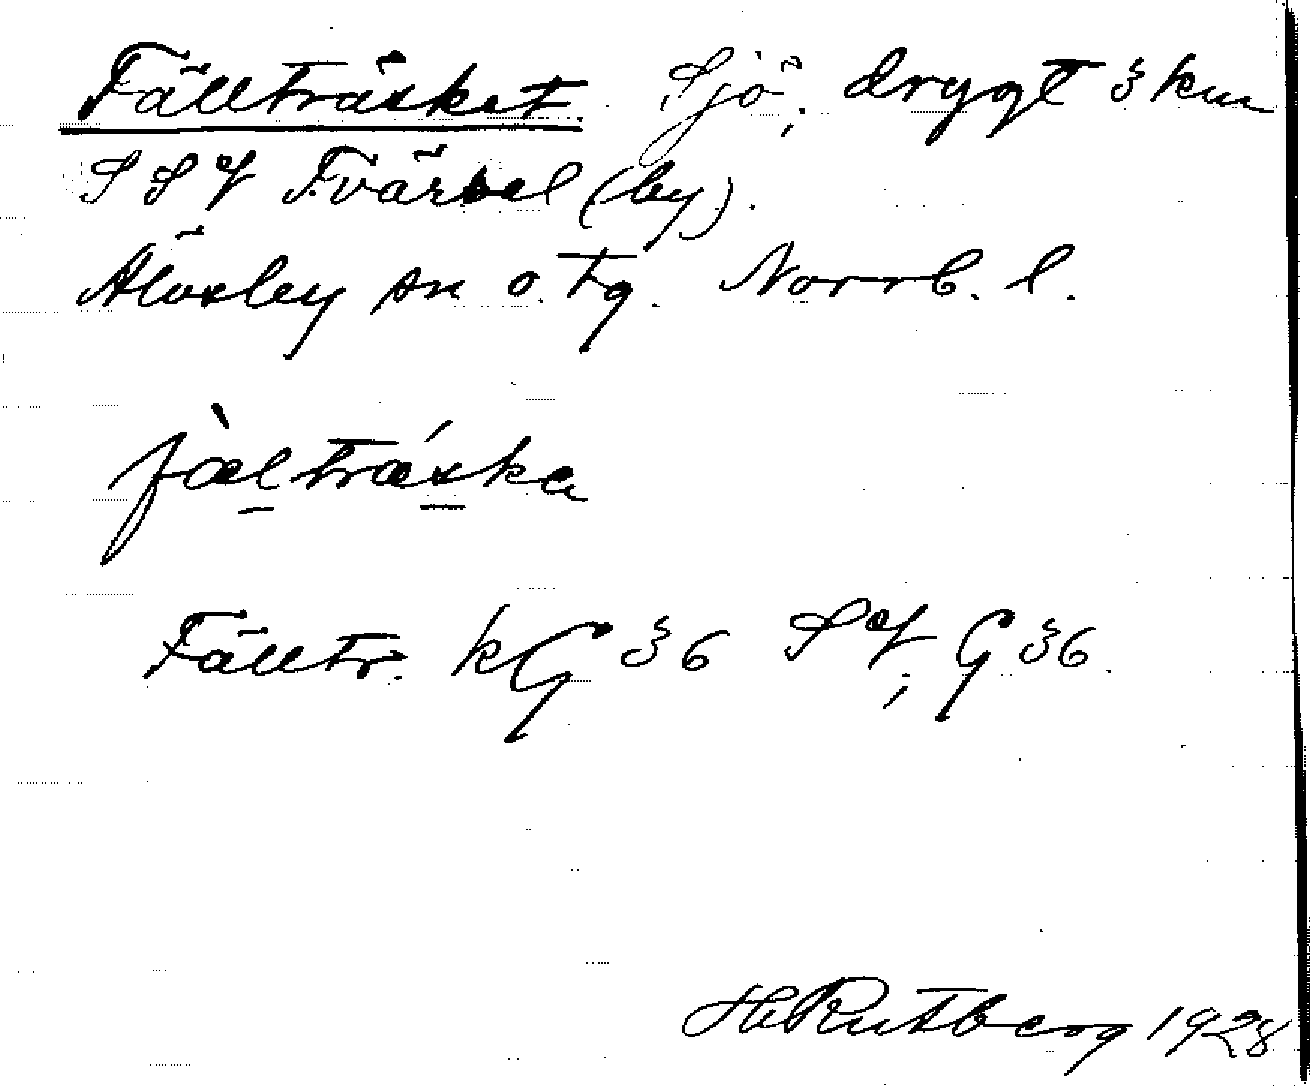 Fällträsket. Sjö, drygt 3 km
SSV Tvärsel (by).
Älvsby sn o. tg. Norrb. l.
fæ̀l̠trǽs̠ka
Fälltr. kG 36 SV, G 36.
H Rutberg 1928